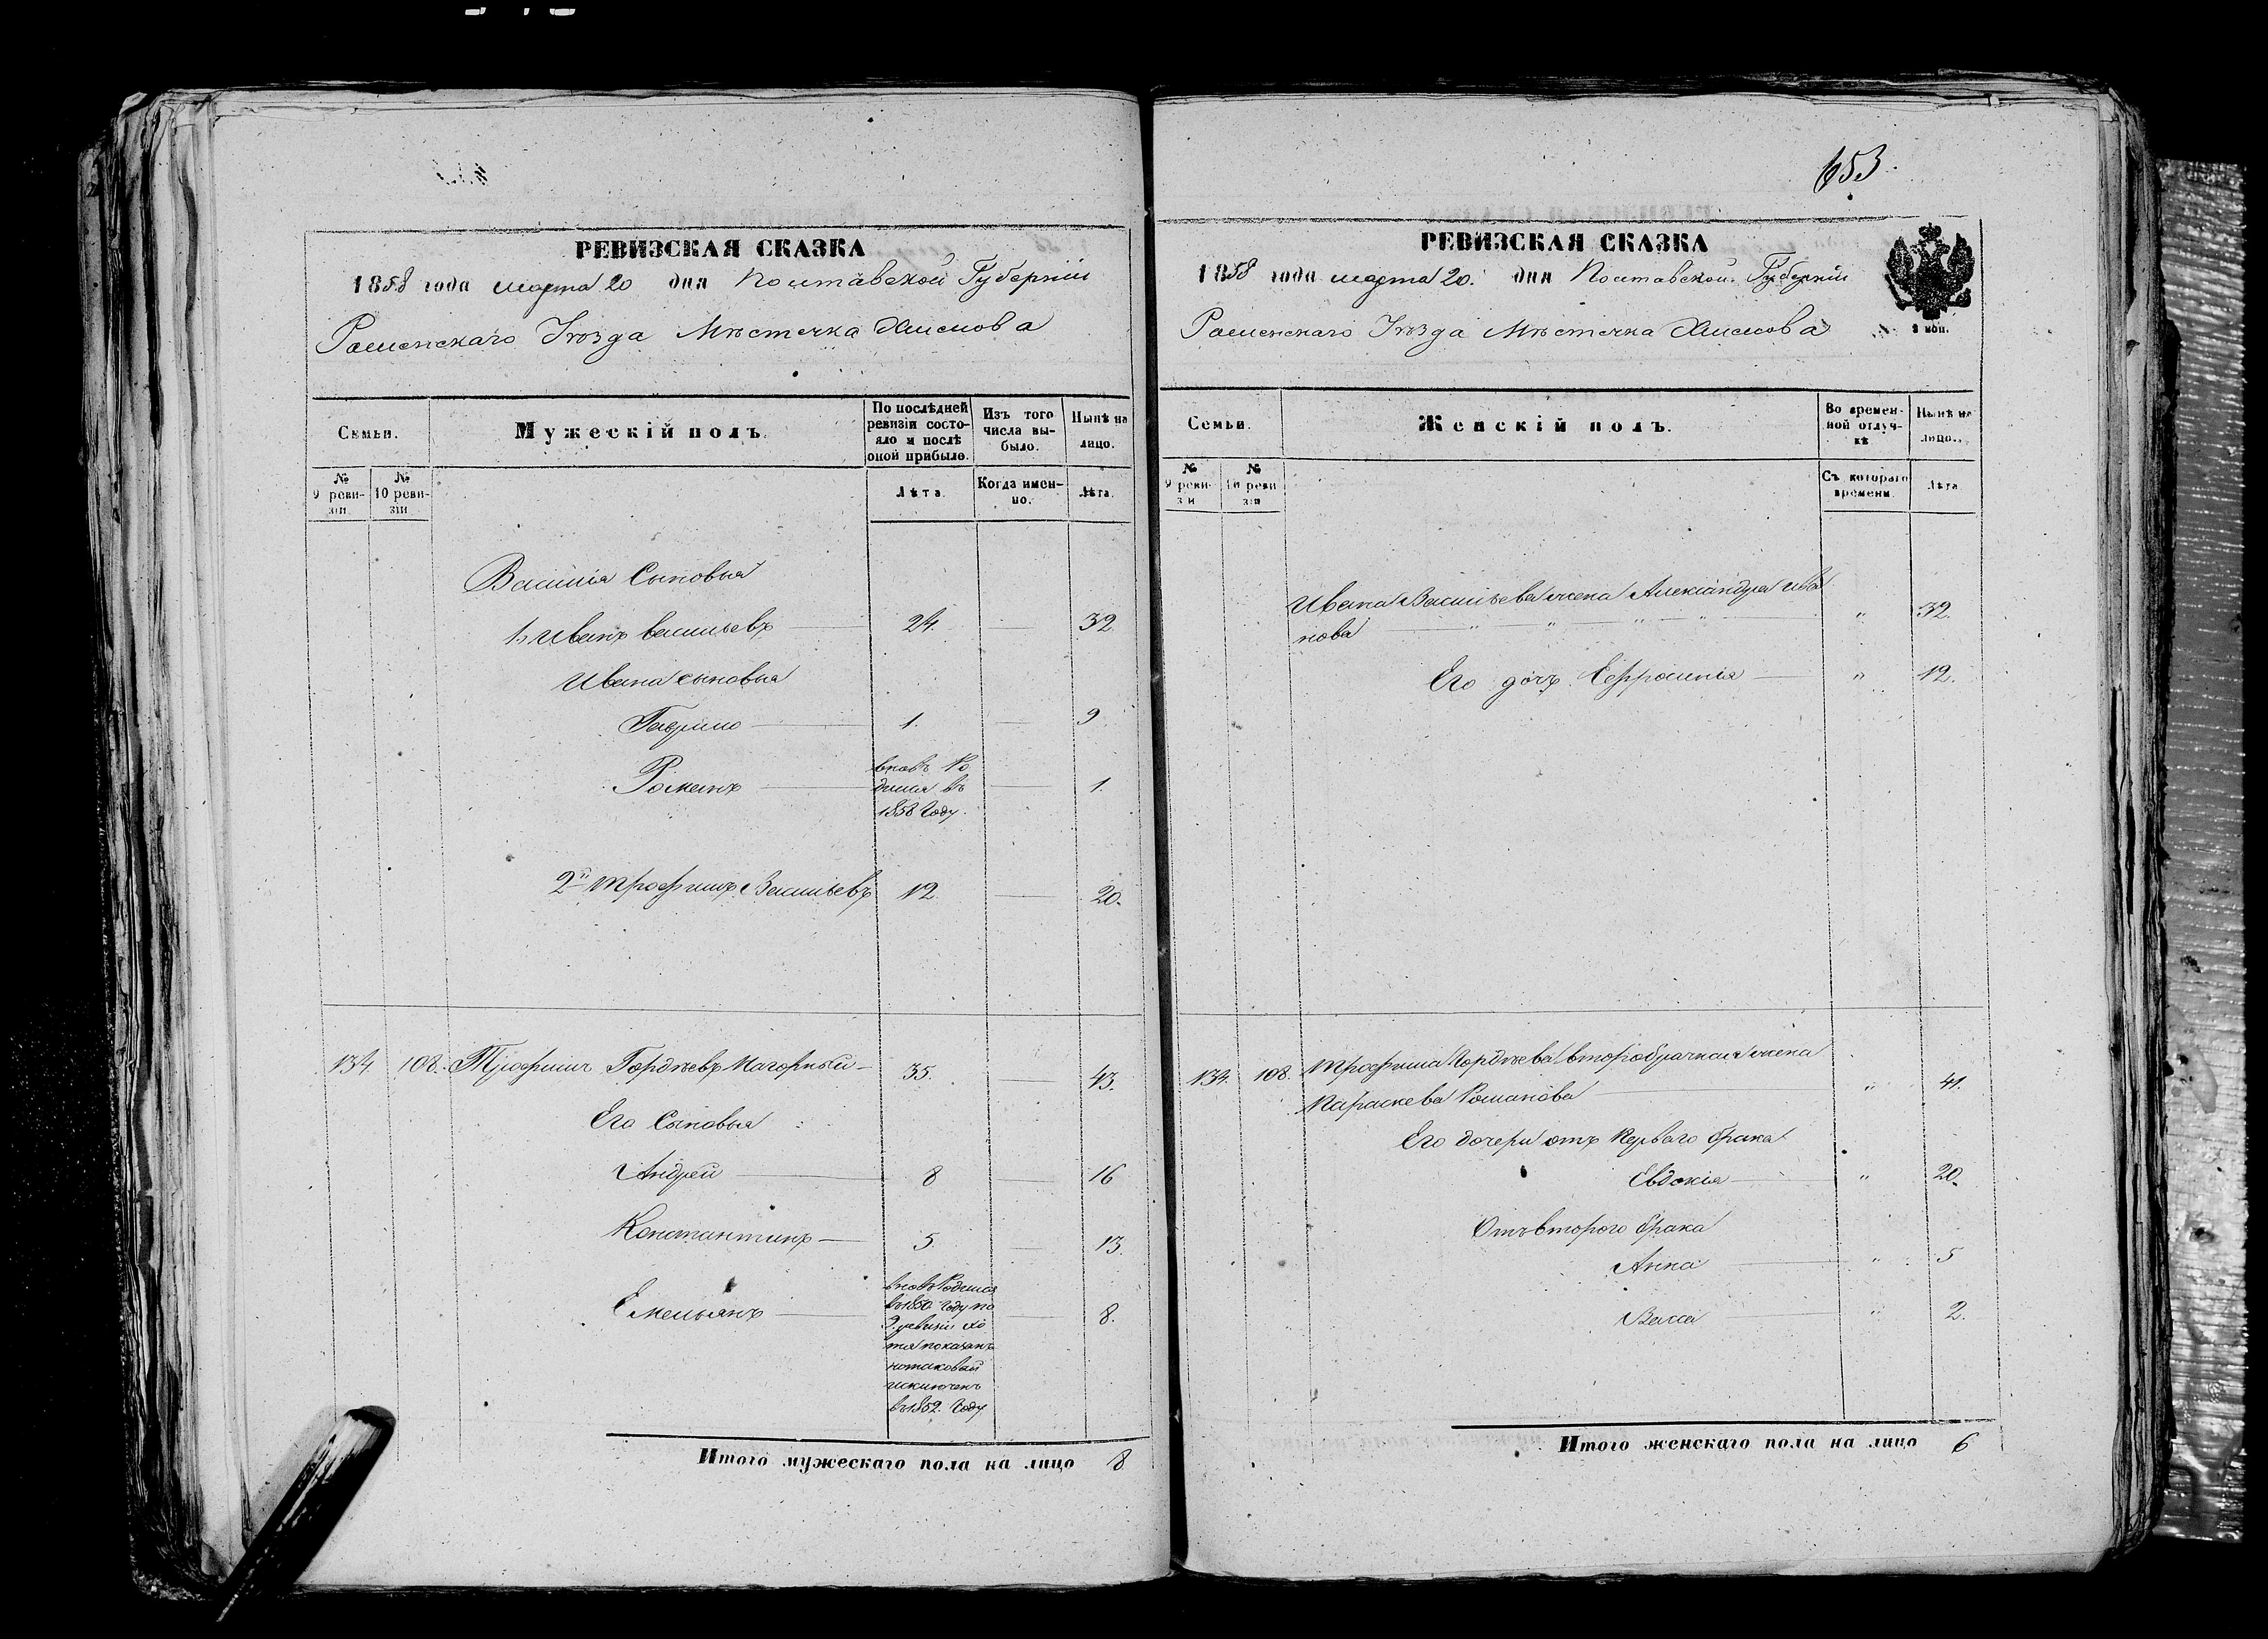 653.
РЕВИЗСКАЯ СКАЗКА
1858 года марта 20 дня Полтавской Губернiи
Роменскаго Уѣзда Мѣстечка Хмелова
Семьи.
Мужескiй полъ.
По послѣдней ревизiи состояло и послѣ оной прибыло.
Изъ того числа выбыло.
Нынѣ на лицо.
№ 9 ревизiи.
№ 10 ревизiи
Лѣта.
Когда именно.
Лѣта.
Василiя Сыновья
1й Иванъ Васильевъ 24. 32.
Ивана сыновья
Гаврило 1. 9
Романъ
вновь Ро
дился въ
1858 Году.
1.
2й Трофимъ Васильевъ 12. 20.
134 108. Трофимъ Гордѣевъ Нагорный 35. 43.
Его Сыновья
Андрей 8 16
Константинъ 5. 13.
Емельянъ
вновь Родился
въ 1850 Году по
9. ревизiи хо
тя показанъ
но таковой
исключенъ
въ 1852. Году
8.
Итого мужескаго пола на лицо 8
РЕВИЗСКАЯ СКАЗКА
1858 года марта 20. дня Полтавской Губернiи
Роменскаго Уѣзда Мѣстечка Хмелова
Семьи.
Женскiй полъ.
Во временной отлучкѣ
Нынѣ на лицо.
№ 9 ревизiи
№ 10 ревизiи
Съ котораго времени.
Лѣта
Ивана Васильева жена Александра Ива
нова " 32.
Его дочь Ефросинiя " 12.
134. 108. Трофима Гордѣева второбрачная жена
Параскева Романова " 41.
Его дочери отъ перваго брака
Евдокiя " 20.
Отъ второго брака
Анна " 5
Васса " 2.
Итого женскаго пола на лицо 6